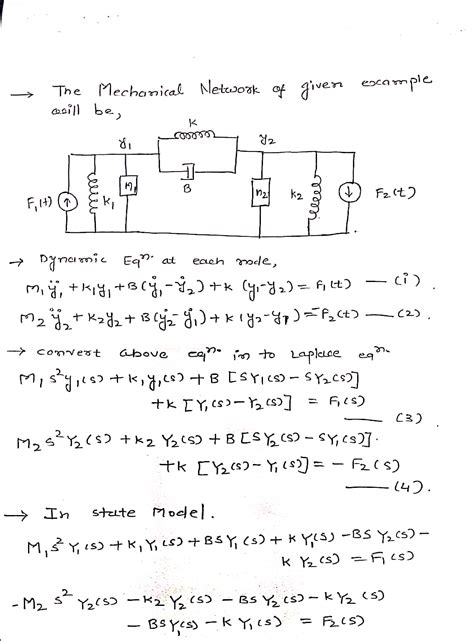 → The Mechanical Network of given example
will be,
K
y1 y2
F1(t) K1 M1 B M2 K2 F2(t)
→ Dynamic Eqn. at each node,
M1ÿ1 + K1y1 + B(ẏ1 - ẏ2) + K (y1 - y2) = F1(t) — (i).
M2ÿ2 + K2y2 + B(ẏ2 - ẏ1) + K(y2 - y1) = -F2(t) — (2).
→ convert above eqn. in to Laplace eqn.
M1s²y1(s) + K1y1(s) + B [SY1(s) - SY2(s)]
+K [Y1(s) - Y2(s)] = F1(s)
— (3)
M2s² Y2(s) + K2 Y2(s) + B[SY2(s) - SY1(s)].
+K [Y2(s) - Y1(s)] = - F2(s)
— (4).
→ In state Model.
M1s² Y1(s) + K1Y1(s) + BSY1(s) + K Y1(s) - BS Y2(s) -
K Y2(s) = F1(s)
- M2 s² Y2(s) - K2 Y2(s) - BS Y2(s) - K Y2(s)
- BSY1(s) - K Y1(s) = F2(s)